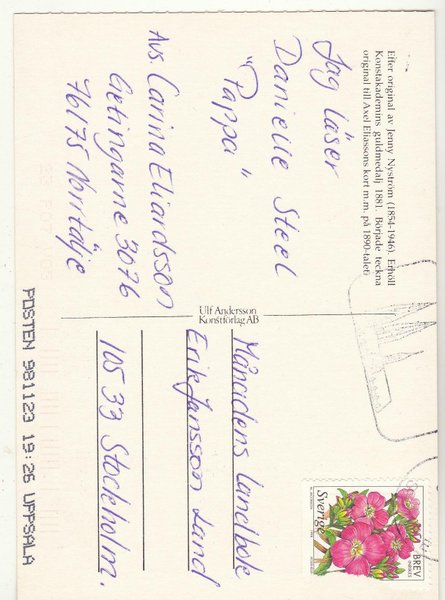 Efter original av Jenny Nyström (1854-1946). Erhöll
Konstakademins guldmedalj 1881. Började teckna
original till Axel Eliassons kort m.m. på 1890-talet
Jag läser
Danielle Steel
"Pappa"
Avs. Carina Eliardsson
Getingarne 3076
76175 Norrtälje
Ulf Andersson
Konstförlag AB
Månadens Landbole
Erik Jansson Land
105 33 Stockholm.
Sverige
BREV
INRIKES
POSTEN 981123 19:26 UPPSALA